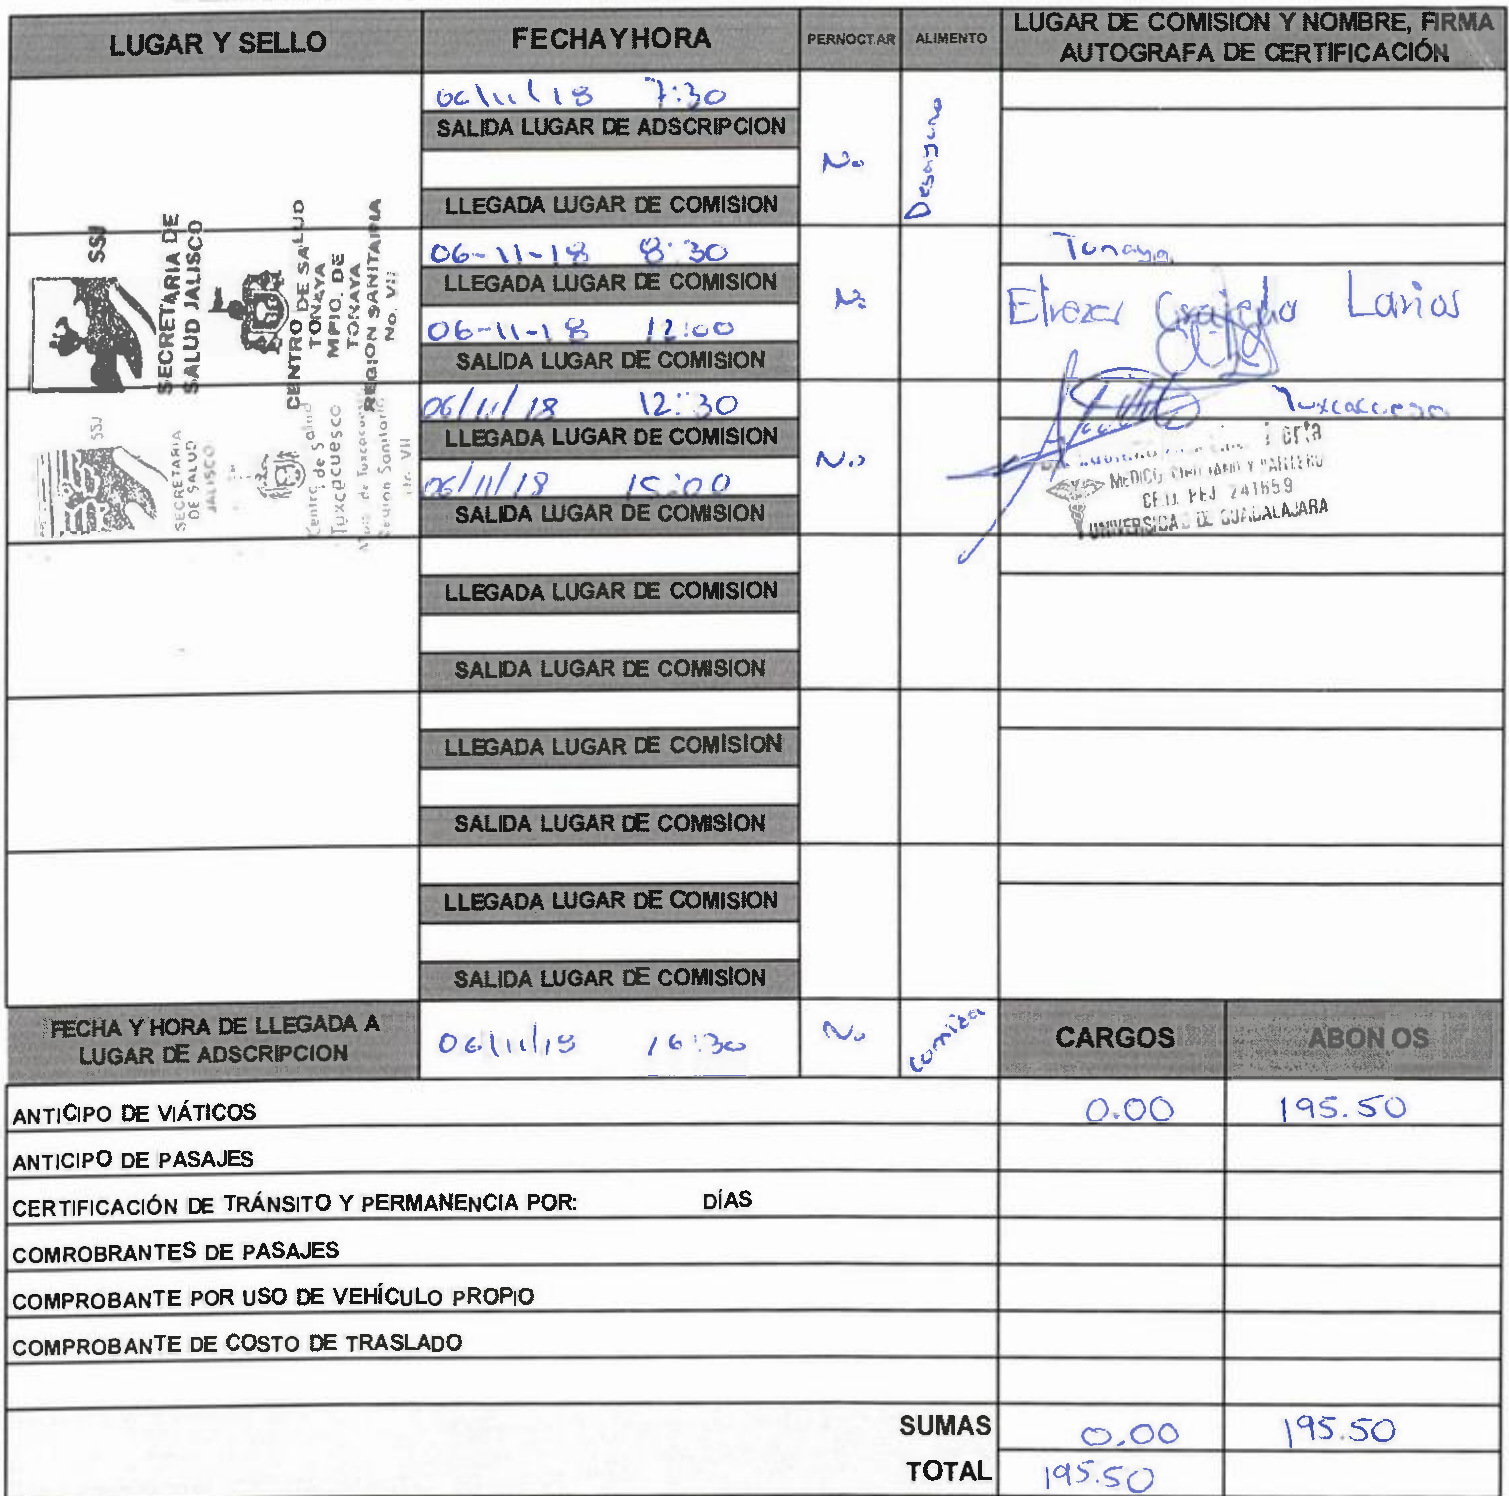 LUGAR Y SELLO
FECHA Y HORA
PERNOCTAR
ALIMENTO
LUGAR DE COMISION Y NOMBRE, FIRMA
AUTOGRAFA DE CERTIFICACIÓN
06/11/18 7:30
SALIDA LUGAR DE ADSCRIPCION
No
Desayuno
LLEGADA LUGAR DE COMISION
SSJ
SECRETARIA DE
SALUD JALISCO
CENTRO DE SALUD
TONAYA
MPIO. DE
TONAYA
REGION SANITARIA
No. VII
06-11-18 8:30
LLEGADA LUGAR DE COMISION
06-11-18 12:00
SALIDA LUGAR DE COMISION
No
Tonaya
Larios
SSJ
SECRETARIA
DE SALUD
JALISCO
Centro de Salud
Tuxcacuesco
06/11/18 12:30
LLEGADA LUGAR DE COMISION
06/11/18 15:00
SALIDA LUGAR DE COMISION
No
Tuxcacuesco
MEDICO CIRUJANO Y PARTERO
CED. FEJ. 241659
UNIVERSIDAD DE GUADALAJARA
LLEGADA LUGAR DE COMISION
SALIDA LUGAR DE COMISION
LLEGADA LUGAR DE COMISION
SALIDA LUGAR DE COMISION
LLEGADA LUGAR DE COMISION
SALIDA LUGAR DE COMISION
FECHA Y HORA DE LLEGADA A
LUGAR DE ADSCRIPCION
06/11/18 16:30
No
comida
CARGOS
ABONOS
ANTICIPO DE VIÁTICOS 0.00 195.50
ANTICIPO DE PASAJES
CERTIFICACIÓN DE TRÁNSITO Y PERMANENCIA POR: DÍAS
COMROBRANTES DE PASAJES
COMPROBANTE POR USO DE VEHÍCULO PROPIO
COMPROBANTE DE COSTO DE TRASLADO
SUMAS 0.00 195.50
TOTAL 195.50